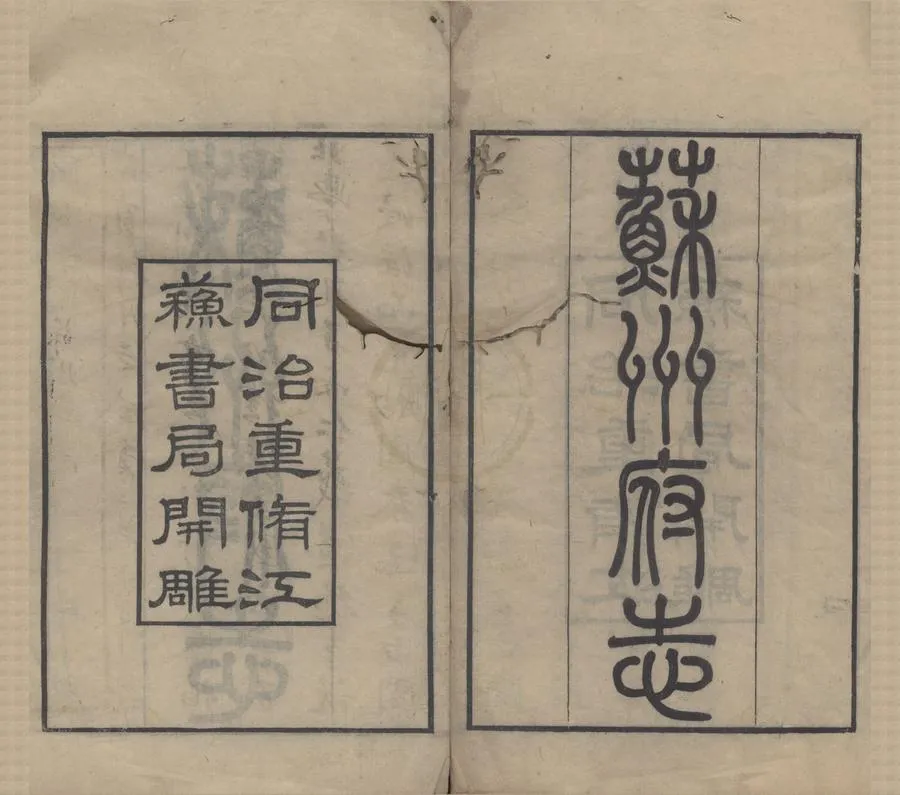 蘇州府志
同治重脩江
蘇書局開雕